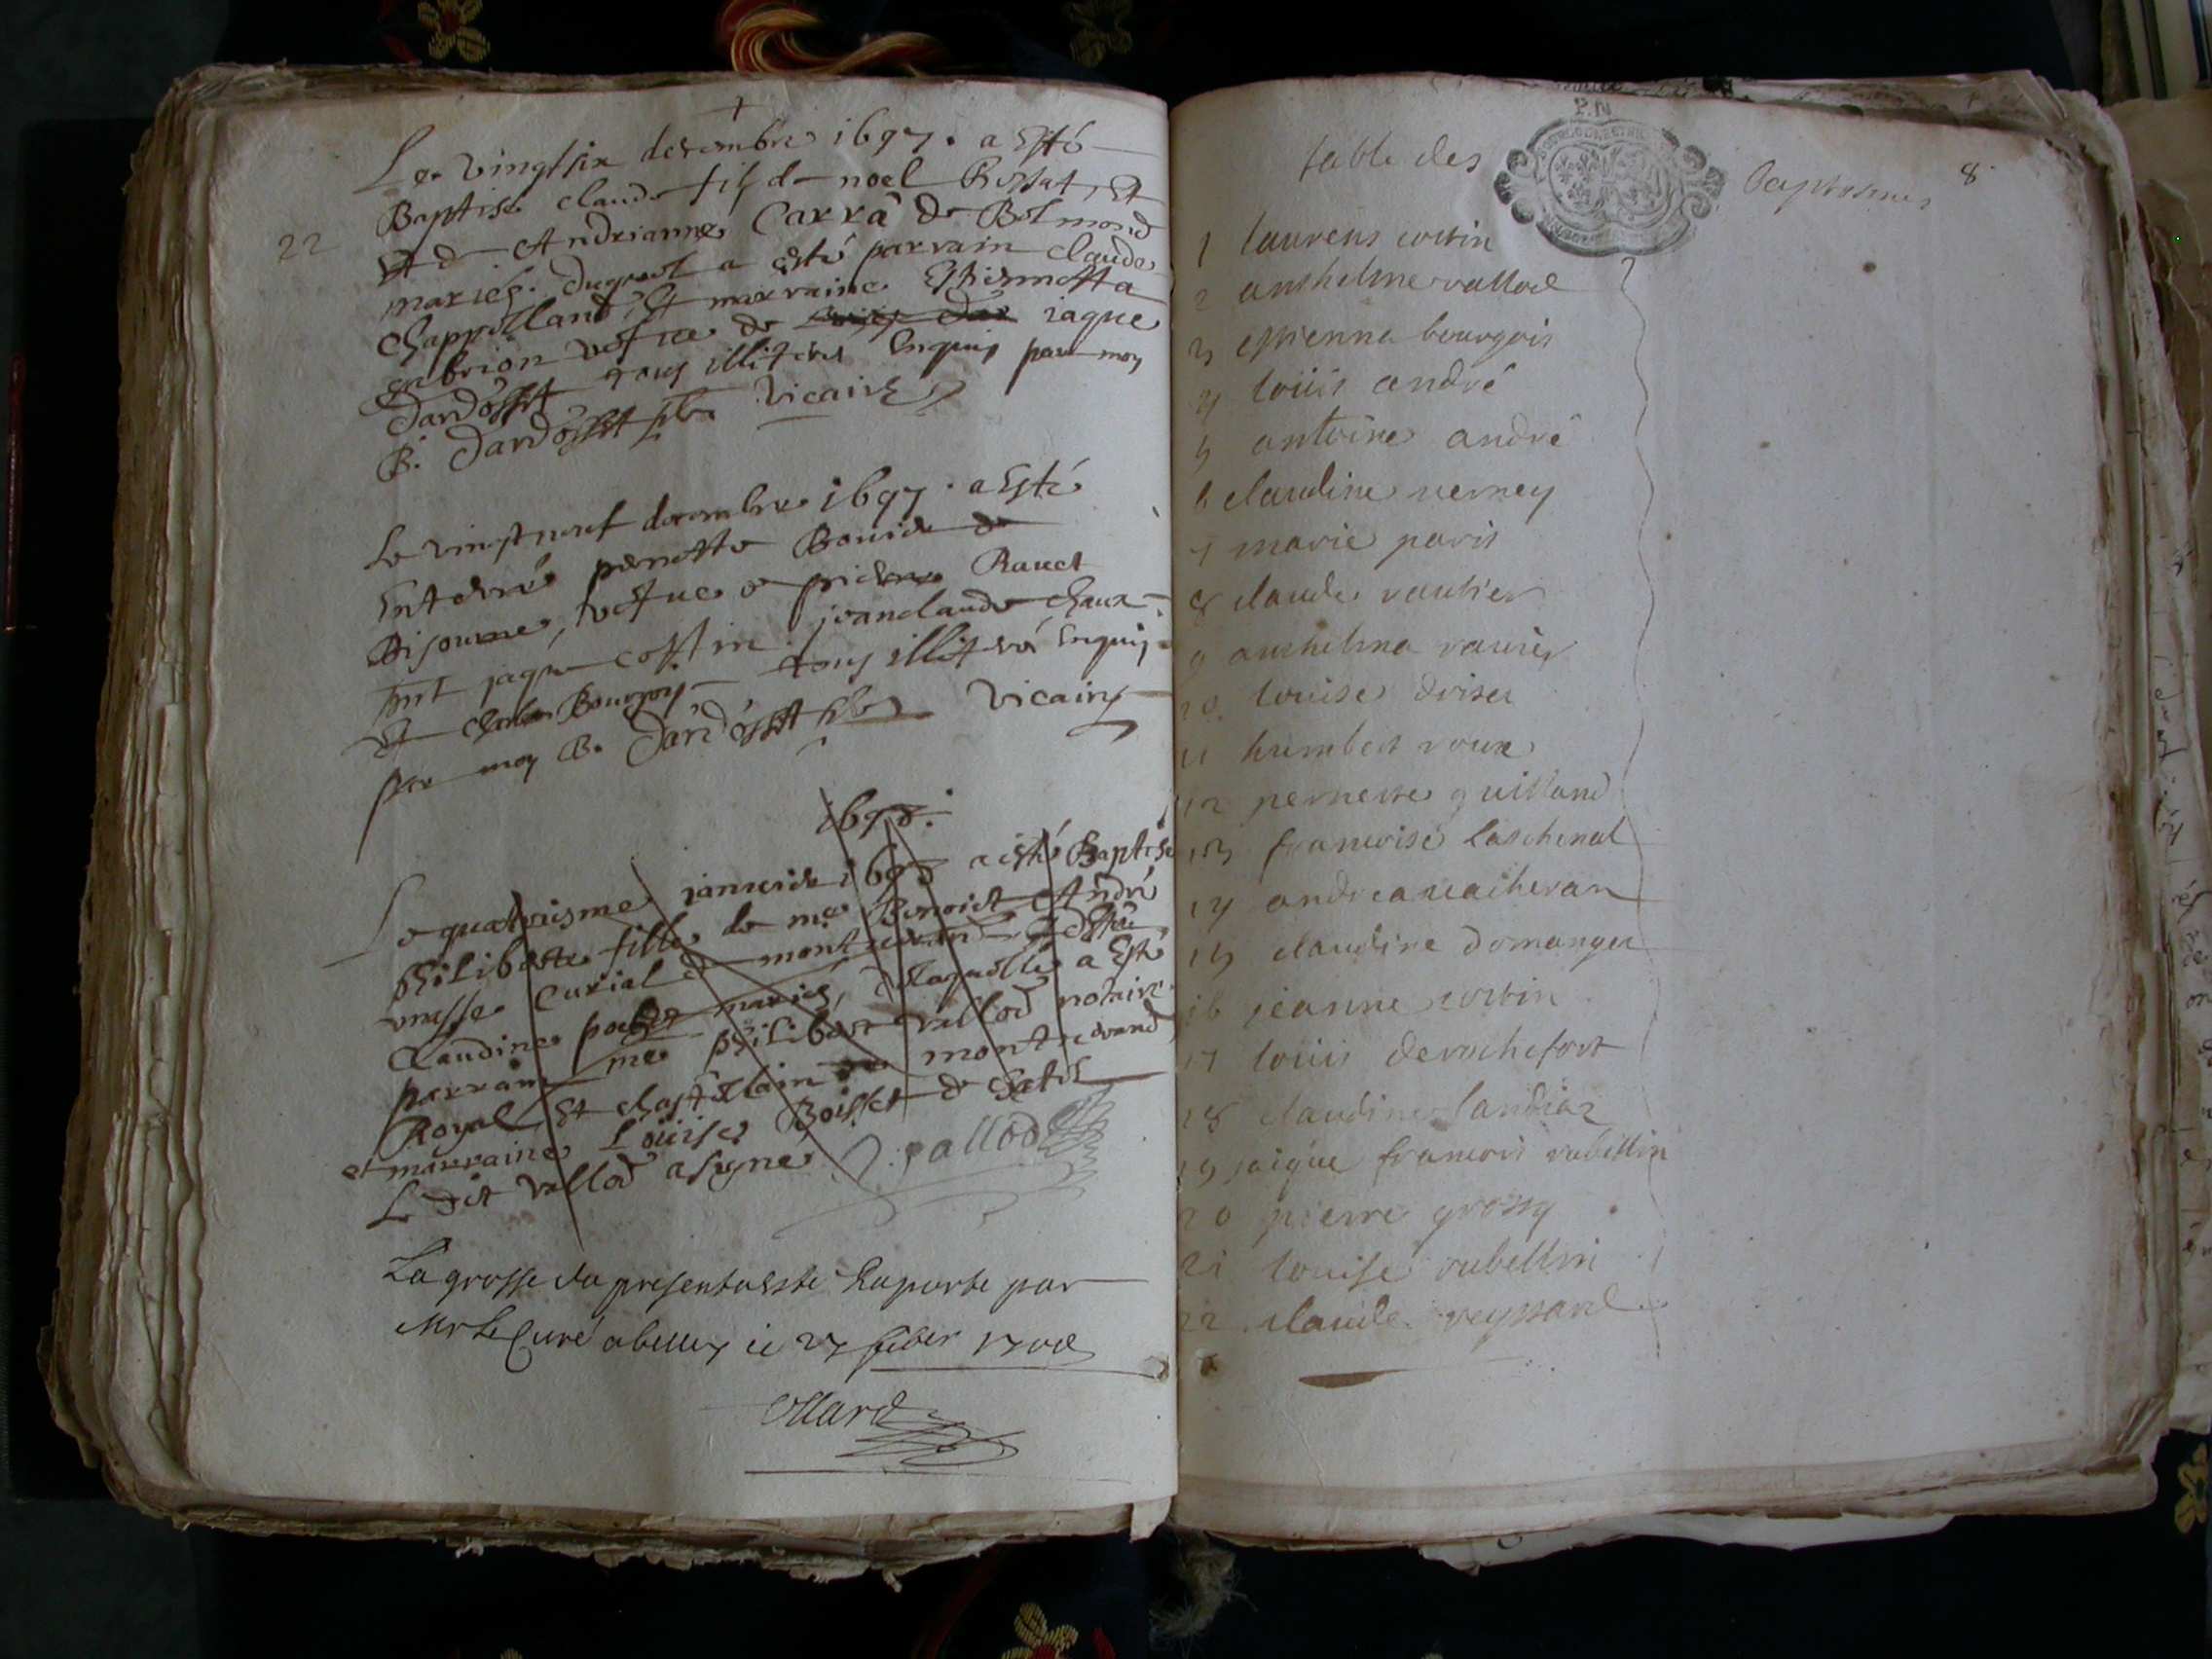 Le vingtsix decembre 1697. a Esté
Baptisé claude fils de noel Rossat, Et
22
Et de Andrianne Carra de Belmond
mariés. duquel a esté parrain claude
chappelland, Et marraine Estiennetta
gabrion vefve de iaque
dardosset tous illiterés Enquis par moy
B. dardosset pbr vicaire
Le vingt neuf decembre 1697. a Esté
Enterré pernette
vefue Rauet
jaque costin. jeanclaude
Et Bourgois tous illiteré Enquis
par moy B. dardosset pbr vicaire
1698.
Le quatriesme janvier 1698 a esté Baptisé
philiberte fille de me Benoict André
curial de montuerand Et dstie
Claudine mariés, Delaquelle a Esté
parrain me philibert vallod notaire
Royal, Et chastellain de montuerand
et marraine Louise Boisset de
Le dit vallod a signe vallod
La grosse du presentaesté Raporte par
Mr Le Curé abelley ce 27 feber 1708
table des baptesmes 8
P.N
1 laurens costin
2 anthelme vallod
3 estienna bourgois
4 loüis andré
5 antoine andré
6 claudine verney
7 marie paris
8 claude vautier
9 anthelma
10 louise
11 humbert roux
12 pernette guilland
13 francoise laschenal
14 andrea
15 claudine domanget
16 jeanne costin
17 loüis derochefort
18 claudine landraz
19 jaique francois rubellin
20 pierre grossy
21 louise rubellin
22 claude